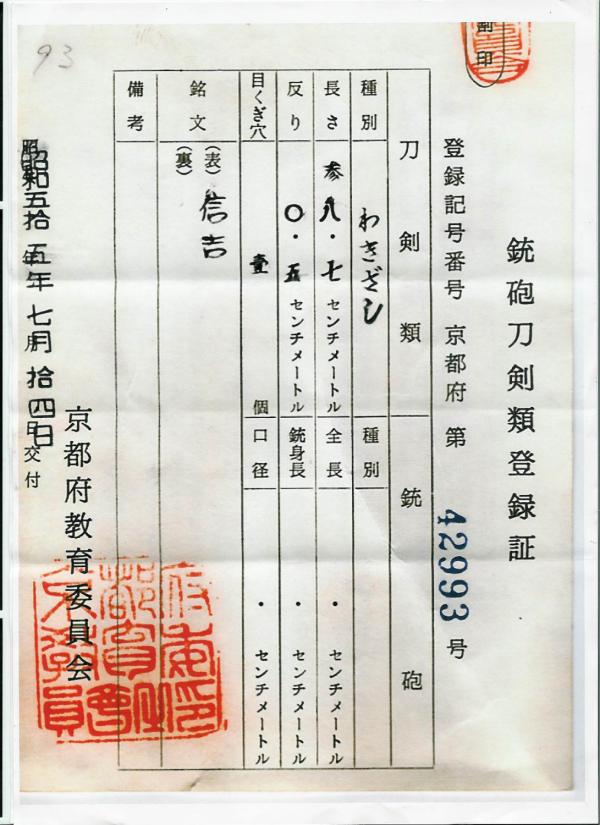 割印
銃砲刀剣類登録証
登録記号番号 京都府 第 42993 号
刀剣類 銃砲
種別 わきざし 種別
長さ 参八・七センチメートル 全長 ・ センチメートル
反り 〇・五センチメートル 銃身長 ・ センチメートル
目くぎ穴 壹 個 口径 ・ センチメートル
銘文 (表) 信吉
(裏)
備考
昭和五拾五年七月拾四日交付
京都府教育委員会
93